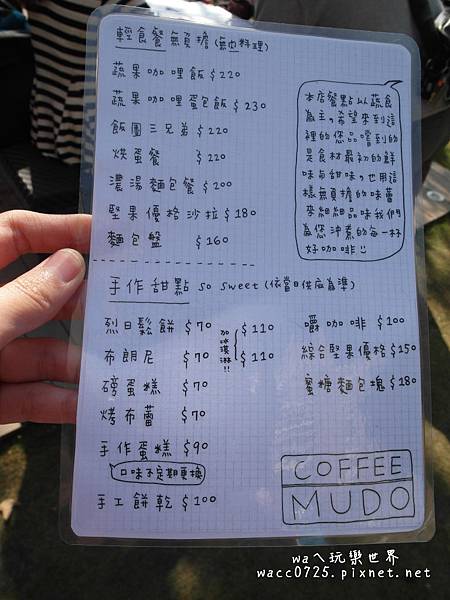 輕食餐無負擔(無肉料理)
蔬果咖哩飯 $220
蔬果咖哩蛋包飯 $230
飯團三兄弟 $220
烘蛋餐 $220
濃湯麵包餐 $200
堅果優格沙拉 $180
麵包盤 $160
本店餐點以蔬食
為主,希望來到這
裡的您品嚐到的
是食材最初的鮮
味與甜味,也用這
樣無負擔的味蕾
來細細品味我們
為您沖煮的每一杯
好咖啡
手作甜點 so sweet (依當日供應為準)
烈日鬆餅 $70
布朗尼 $70
磅蛋糕 $70
烤布蕾 $70
手作蛋糕 $90
口味不定期更換
手工餅乾 $100
加冰淇淋!!
$110
$110
嚼咖啡 $100
綜合堅果優格 $150
蜜糖麵包塊 $180
COFFEE
MUDO
waㄟ玩樂世界
wacc0725.pixnet.net